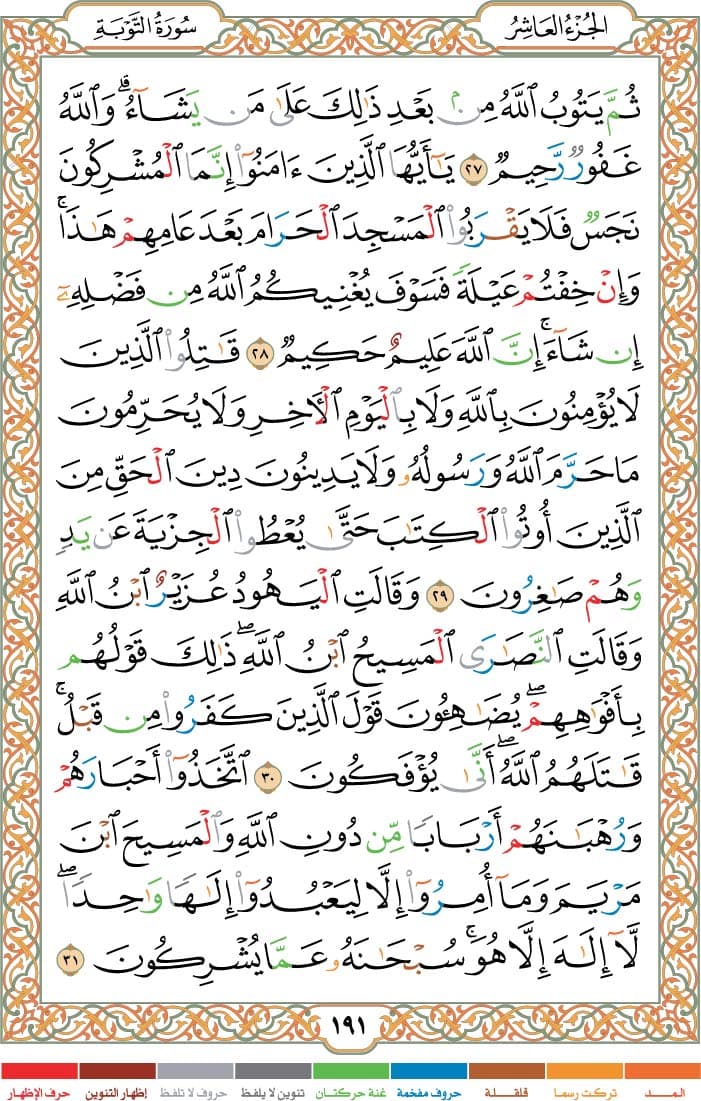 الجُزْءُ العَاشِرُ
سُورَةُ التَّوْبَةِ
ثُمَّ يَتُوبُ ٱللَّهُ مِنۢ بَعْدِ ذَٰلِكَ عَلَىٰ مَن يَشَآءُۗ وَٱللَّهُ
غَفُورٌ رَّحِيمٌ ٢٧ يَٰٓأَيُّهَا ٱلَّذِينَ ءَامَنُوٓا۟ إِنَّمَا ٱلْمُشْرِكُونَ
نَجَسٌ فَلَا يَقْرَبُوا۟ ٱلْمَسْجِدَ ٱلْحَرَامَ بَعْدَ عَامِهِمْ هَٰذَاۚ
وَإِنْ خِفْتُمْ عَيْلَةً فَسَوْفَ يُغْنِيكُمُ ٱللَّهُ مِن فَضْلِهِۦٓ
إِن شَآءَۚ إِنَّ ٱللَّهَ عَلِيمٌ حَكِيمٌ ٢٨ قَٰتِلُوا۟ ٱلَّذِينَ
لَا يُؤْمِنُونَ بِٱللَّهِ وَلَا بِٱلْيَوْمِ ٱلْأَخِرِ وَلَا يُحَرِّمُونَ
مَا حَرَّمَ ٱللَّهُ وَرَسُولُهُۥ وَلَا يَدِينُونَ دِينَ ٱلْحَقِّ مِنَ
ٱلَّذِينَ أُوتُوا۟ ٱلْكِتَٰبَ حَتَّىٰ يُعْطُوا۟ ٱلْجِزْيَةَ عَن يَدٍ
وَهُمْ صَٰغِرُونَ ٢٩ وَقَالَتِ ٱلْيَهُودُ عُزَيْرٌ ٱبْنُ ٱللَّهِ
وَقَالَتِ ٱلنَّصَٰرَى ٱلْمَسِيحُ ٱبْنُ ٱللَّهِۖ ذَٰلِكَ قَوْلُهُم
بِأَفْوَٰهِهِمْۖ يُضَٰهِـُٔونَ قَوْلَ ٱلَّذِينَ كَفَرُوا۟ مِن قَبْلُۚ
قَٰتَلَهُمُ ٱللَّهُۖ أَنَّىٰ يُؤْفَكُونَ ٣٠ ٱتَّخَذُوٓا۟ أَحْبَارَهُمْ
وَرُهْبَٰنَهُمْ أَرْبَابًا مِّن دُونِ ٱللَّهِ وَٱلْمَسِيحَ ٱبْنَ
مَرْيَمَ وَمَآ أُمِرُوٓا۟ إِلَّا لِيَعْبُدُوٓا۟ إِلَٰهًا وَٰحِدًاۖ
لَّآ إِلَٰهَ إِلَّا هُوَۚ سُبْحَٰنَهُۥ عَمَّا يُشْرِكُونَ ٣١
١٩١
المـــد تركت رسما قلقلة حروف مفخمة غنة حركتان تنوين لا يلفظ حروف لا تلفظ إظهار التنوين حرف الإظهار